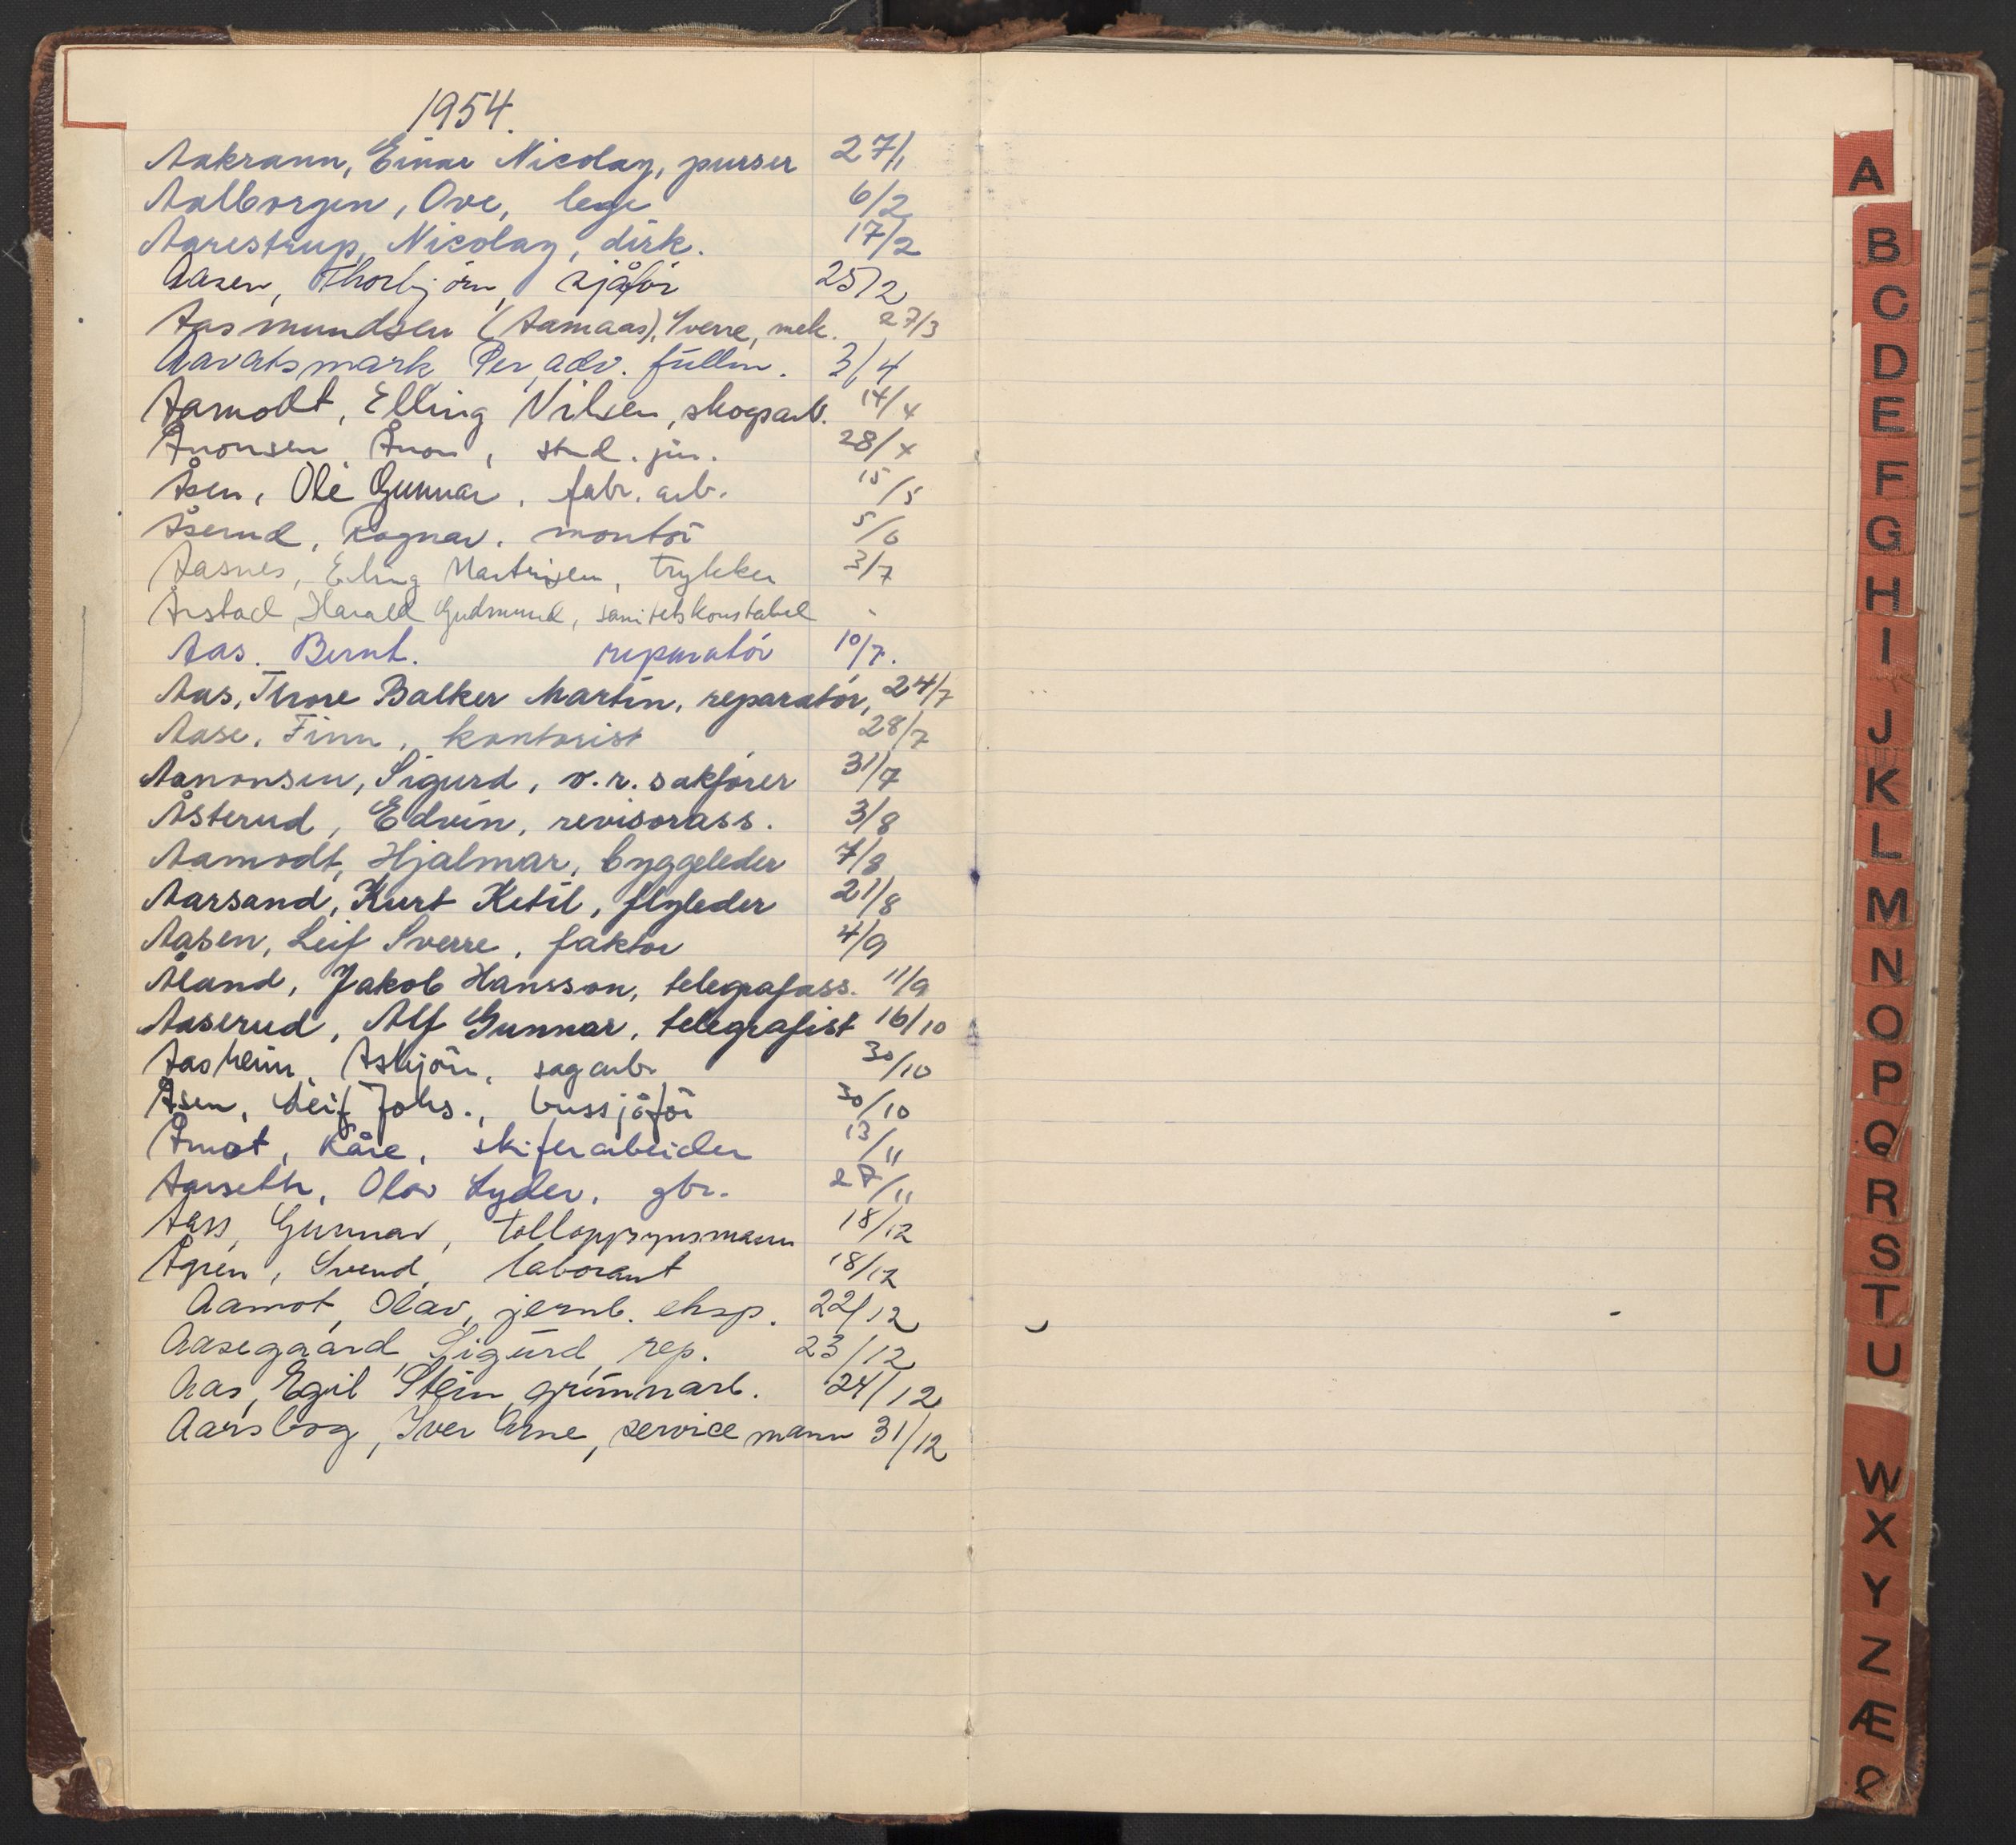 1954.
Aakrann, Einar Nicolay, purser 27/1
Aalborgen, Ove, lege 6/2
Agrestrup, Nicolay, dirk. 17/2
Aasen, Thorbjörn, sjåför 25/2
Aasmundsen (Aamaas), Sverre, mek. 27/3
Aavatsmark Per, adv. fullm. 3/4
Aamodt, Elling Nilsen, skogsarb. 14/4
Ånonsen Ånon, stud. jur. 28/4
Åsen, Ole Gunnar, fabr. arb. 15/5
Åserud, Ragnar, montör 5/6
Aasnes, Erling Martinsen, trykker 3/7
Årstad, Harald Gudmund, sanitetskonstabel -
Aas. Bernt. reparatör 10/7.
Aas, Thore Balker Martin, reparatör, 24/7
Aase, Finn, kontorist 28/7
Aanonsen, Sigurd, o.r. sakförer 31/7
Åsterud, Edvin, revisorass. 3/8
Aamodt, Hjalmar, byggeleder 7/8
Aarsand, Kurt Ketil, flyleder 21/8
Aasen, Leif Sverre, faktor 4/9
Åland, Jakob Hansson, telegrafass. 11/9
Aaserud, Alf Gunnar, telegrafist 16/10
Aasheim, Asbjörn, sagarb 30/10
Åsen, Leif Johs., bussjåför 30/10
Åmot, Kåre, skiferarbeider 13/11
Aarseth, Olav Lyder, gbr. 27/11
Aass, Gunnar, tolloppsynsmann 18/12
Ågren, Svend, laborant 18/12
Aamot, Olav, jernb. eksp. 22/12
Aasegaard, Sigurd, rep. 23/12
Aas, Egil Stein, grunnarb. 24/12
Aarsbog, Iver Arne, service mann 31/12
A
B
C
D
E
F
G
H
I
J
K
L
M
N
O
P
Q
R
S
T
U
W
X
Y
Z
Æ